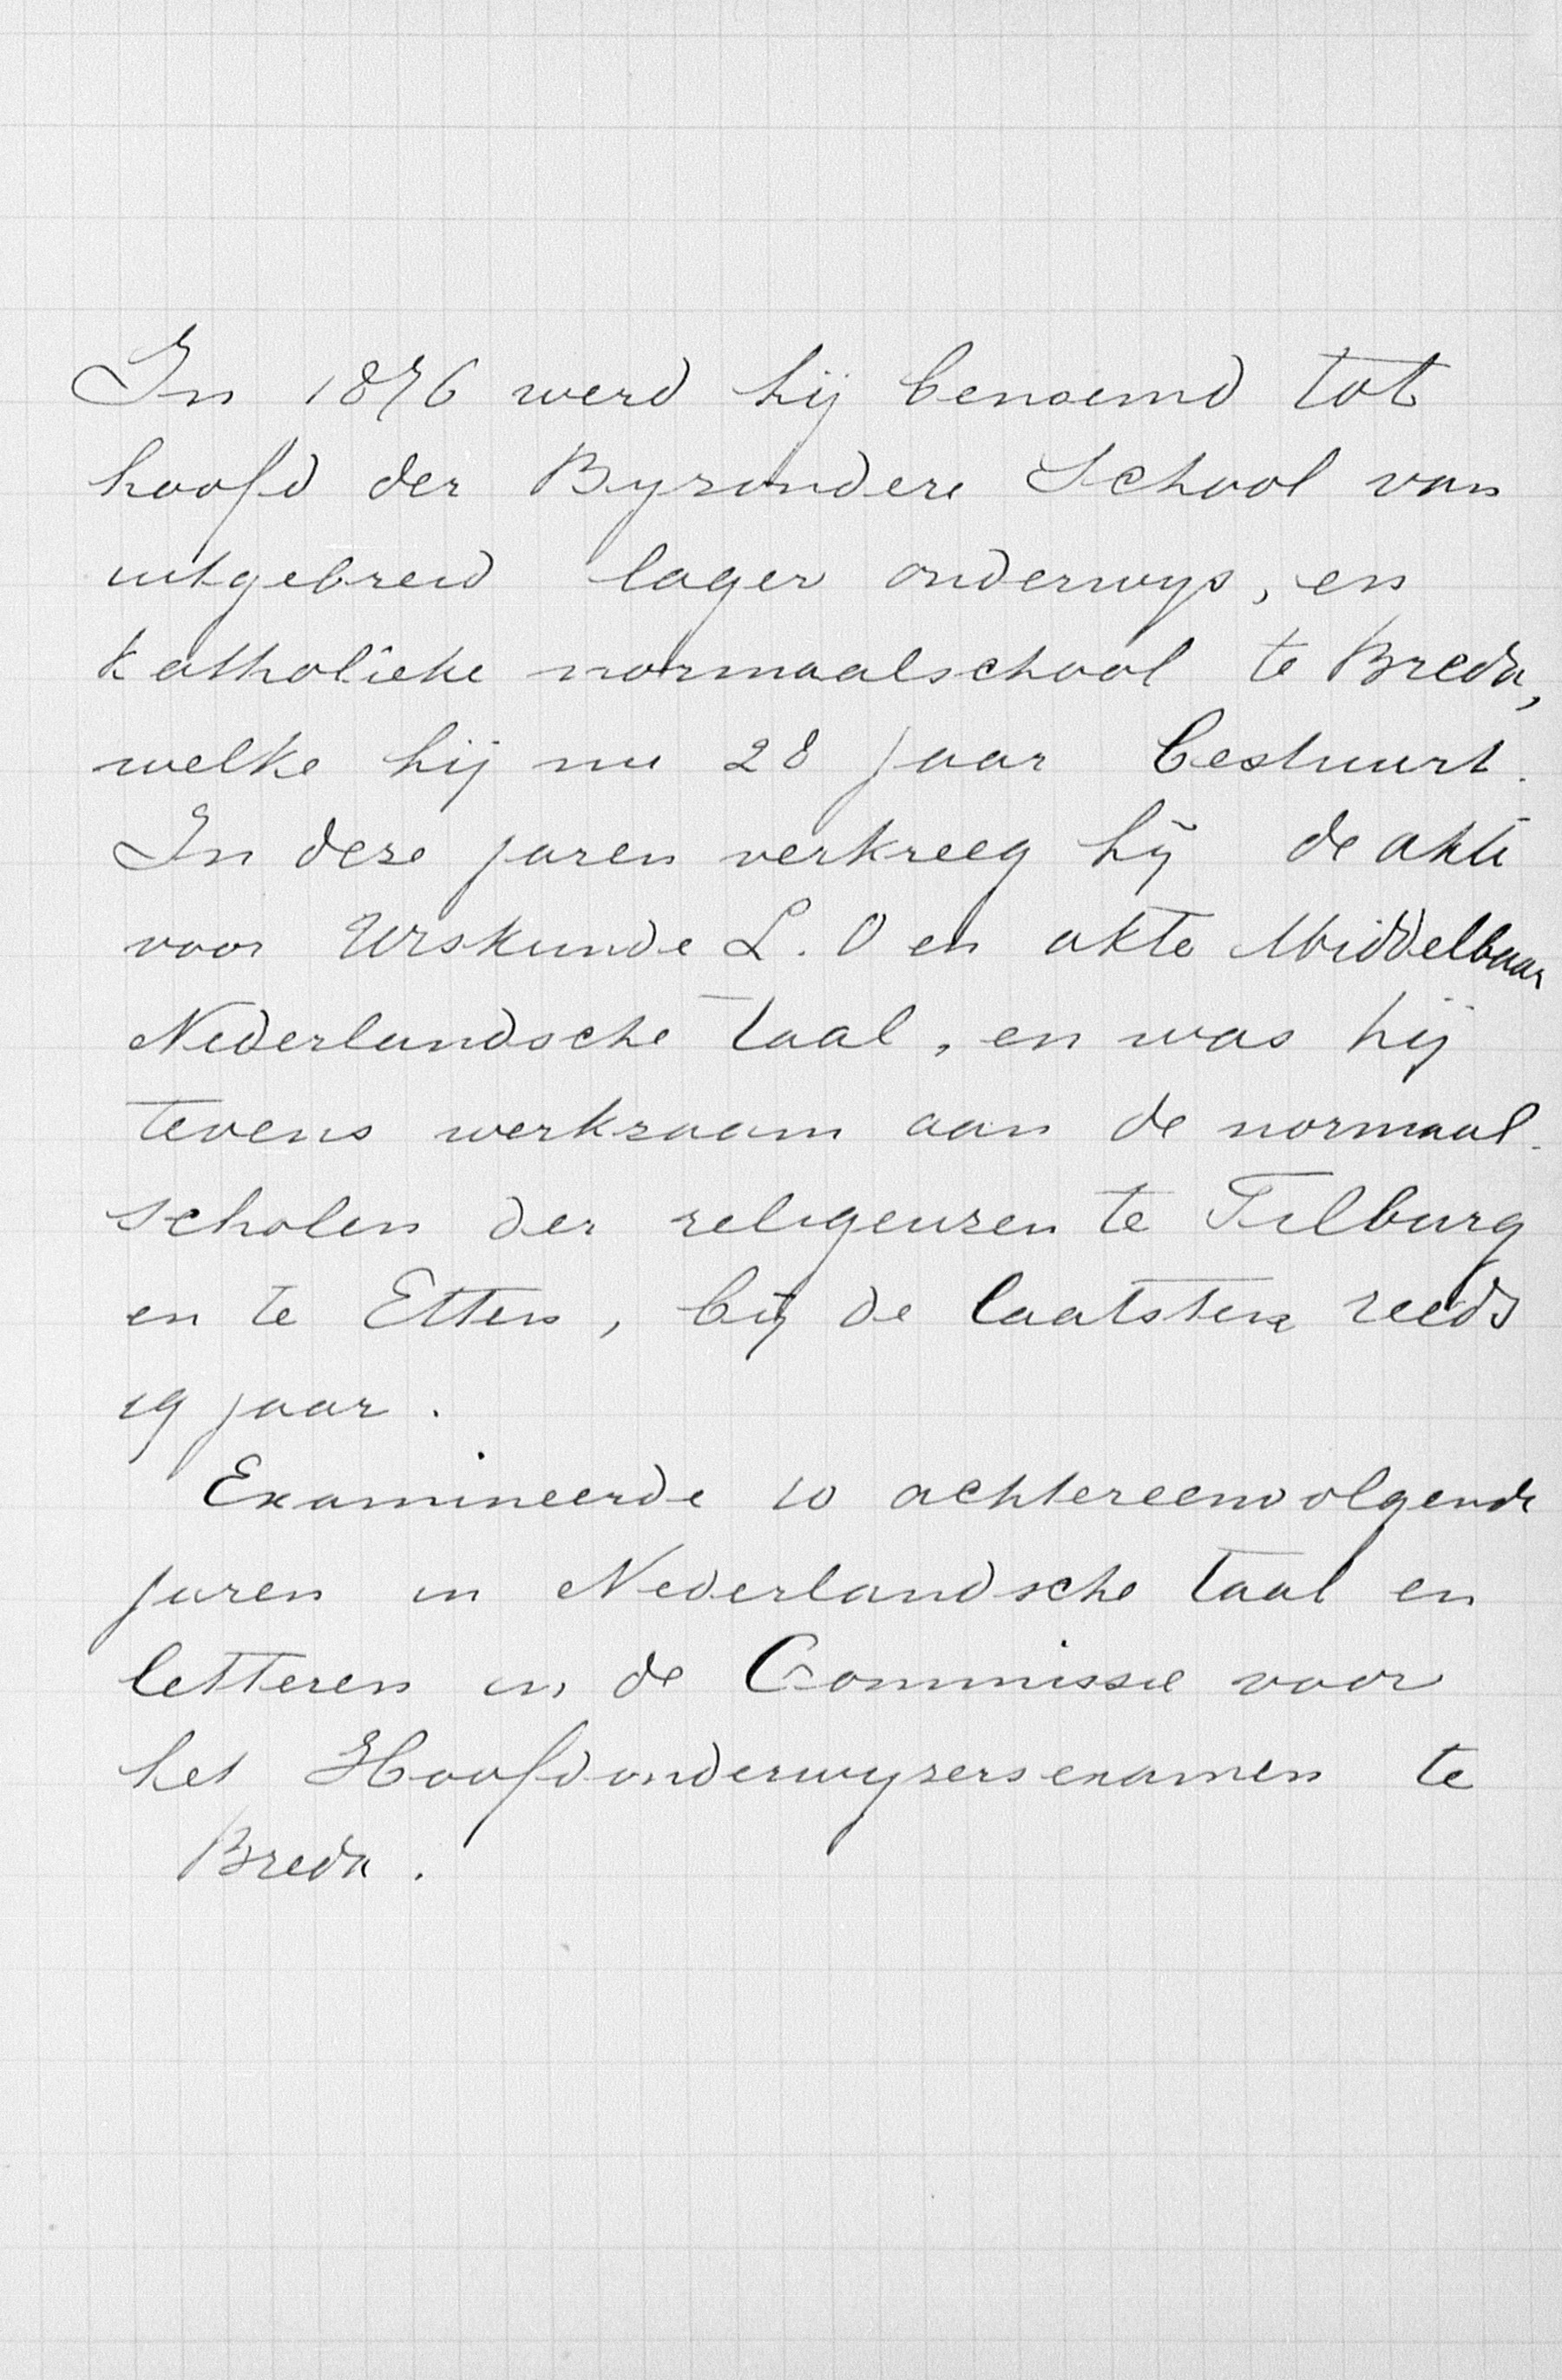 In 1876 werd hij benoemd tot
hoofd der Byzondere School van
uitgebreid lager onderwys, en
katholieke normaalschool te Breda,
welke hij nu 28 jaar bestuurt.
In deze jaren verkreeg hij de akte
voor Wiskunde L. O en akte Middelbaar
Nederlandsche taal, en was hij
tevens werkzaam aan de normaal-
scholen der religeuzen te Tilburg
en te Etten, bij de laatsten reeds
19 jaar.
Examineerde 10 achtereenvolgende
jaren in Nederlandsche taal en
letteren in de Commissie voor
het Hoofdonderwyzersexamen te
Breda.